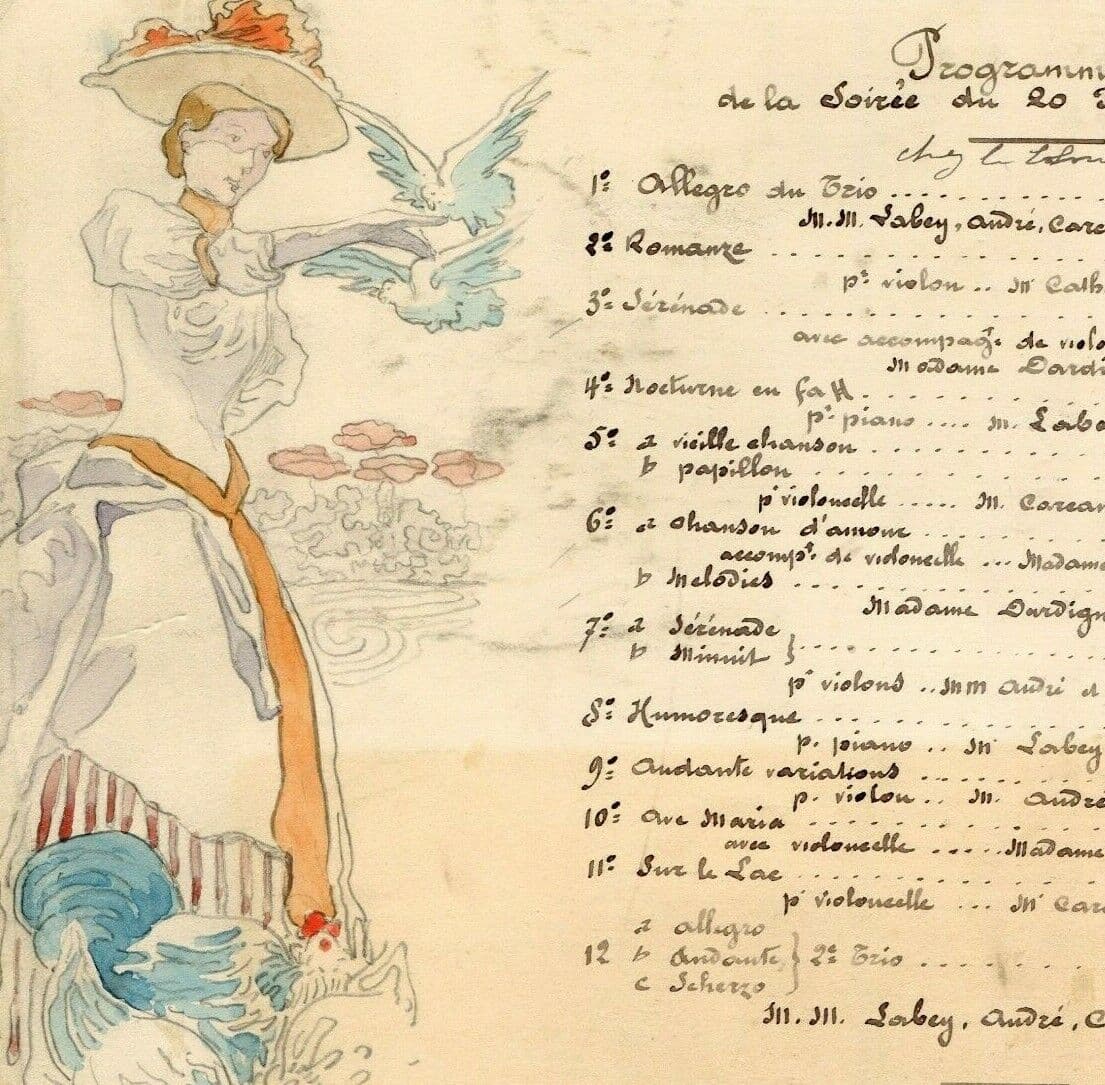 Programm
de la Soirée du 20
chez le
1º: Allegro du Trio ..........
M.M. Labey, André, Care
2º: Romanze ..........
pr violon .. Mr Cath
3º: Sérénade ..........
avec accompagt. de violo
Madame Dardi
4º: Nocturne en fa # ..........
pr piano .... M. Labe
5º: a vieille chanson ..........
b papillon ..........
pr violoncelle ..... M. Carcan
6º: a Chanson d'amour ..........
accompt. de violoncelle ... Madame
b Melodies ..........
Madame Dardign
7º: a Sérénade
b Minuit } ..........
pr violons .. MM André et
8º: Humoresque ..........
p. piano .. Mr Labey
9º: Andante variations ..........
p. violon .. M. André
10º: Ave Maria ..........
avec violoncelle ..... Madame
11º: Sur le Lac ..........
pr violoncelle ... Mr Carc
a allegro
12 b Andante } 2e Trio ..........
c Scherzo
M.M. Labey, André, C